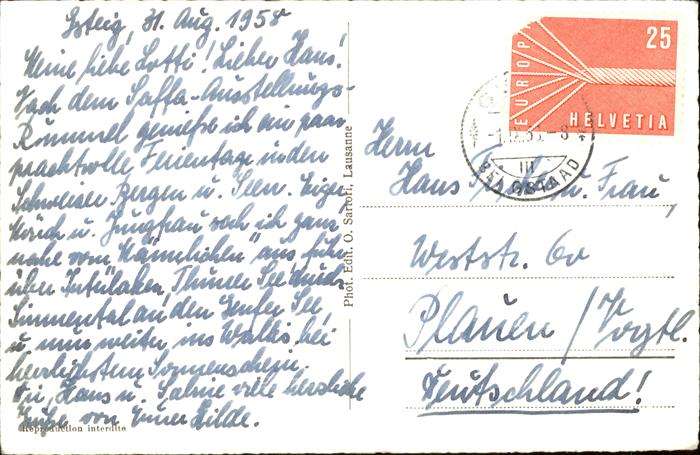 Gsteig, 31. Aug. 1958
Meine liebe Lotti! Lieber Hans!
Nach dem Saffa-Ausstellungs-
Rummel genieße ich ein paar
prachtvolle Ferientage in den
Schweizer Bergen u. Seen. Eiger
Mönch u. Jungfrau sah ich ganz
nahe vom "Männlichen" aus, fuhr
über Interlaken, Thuner See durchs
Simmental an den Genfer See,
u. nun weiter ins Wallis bei
herrlichstem Sonnenschein.
Dir, Hans u. Sabine viele herzliche
Grüße von Eurer Hilde.
Reproduction interdite
Phot. Edit. O. Sartori, Lausanne
EUROPA
25
HELVETIA
GSTAAD
Herrn
Hans u. Frau,
Weststr. 60
Plauen / Vogtl.
Deutschland!